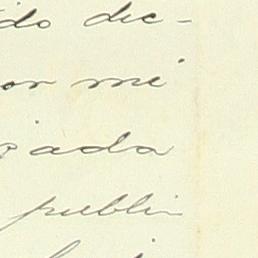 ido dic-
or mi
gada
publi